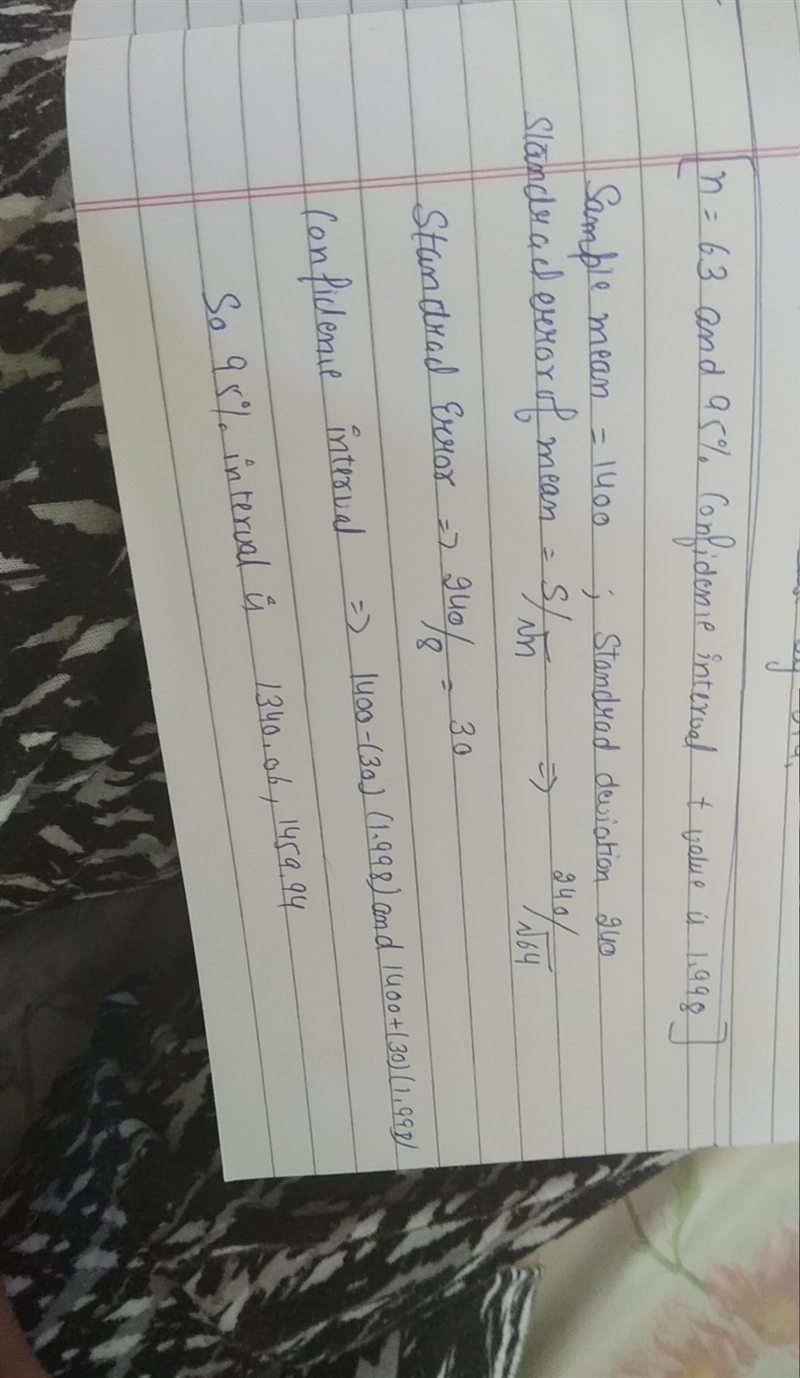 [n = 63 and 95% Confidenie interval t value is 1.998]
Sample mean = 1400 ; Standrad deviation 240
Standrad error of mean = S/√n => 240/√64
Standrad Error => 240/8 = 30
Confidenie interval => 1400-(30) (1.998) and 1400+(30)(1.998)
So 95% interval is 1340.06, 1459.94